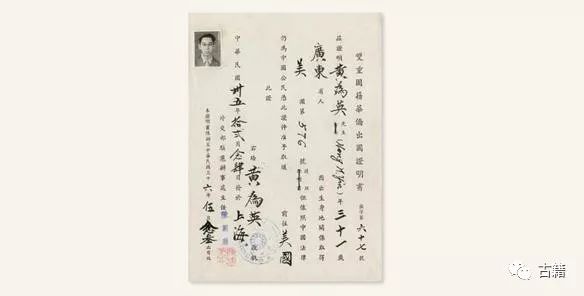 雙重國籍華僑出國證明書
第六十七號
茲證明黃為英先生 年三十一歲
廣東省人 因出生身地關係取得
美國第576號 但依照中國法律
仍為中國公民憑此證件准予取道 前往美國
此證
右給黃為英收執
中華民國卅五年拾弍月念肆日給於上海
外交部駐滬辦事處主任
本證明書有效期至中華民國三十六年伍月
古籍